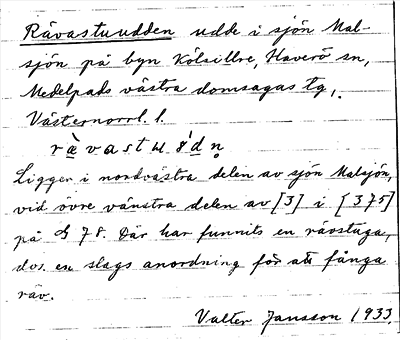 Rävastuudden udde i sjön Mal-
sjön på byn Kölsillre, Haverö sn,
Medelpads västra domsagas tg,
Västernorrl. l.
rävastu. údn̥
Ligger i nordvästra delen av sjön Malsjön,
vid övre vänstra delen av [3] i [375]
på G 78. Där har funnits en rävstuga,
dvs. en slags anordning för att fånga
räv.
Valter Jansson 1933.